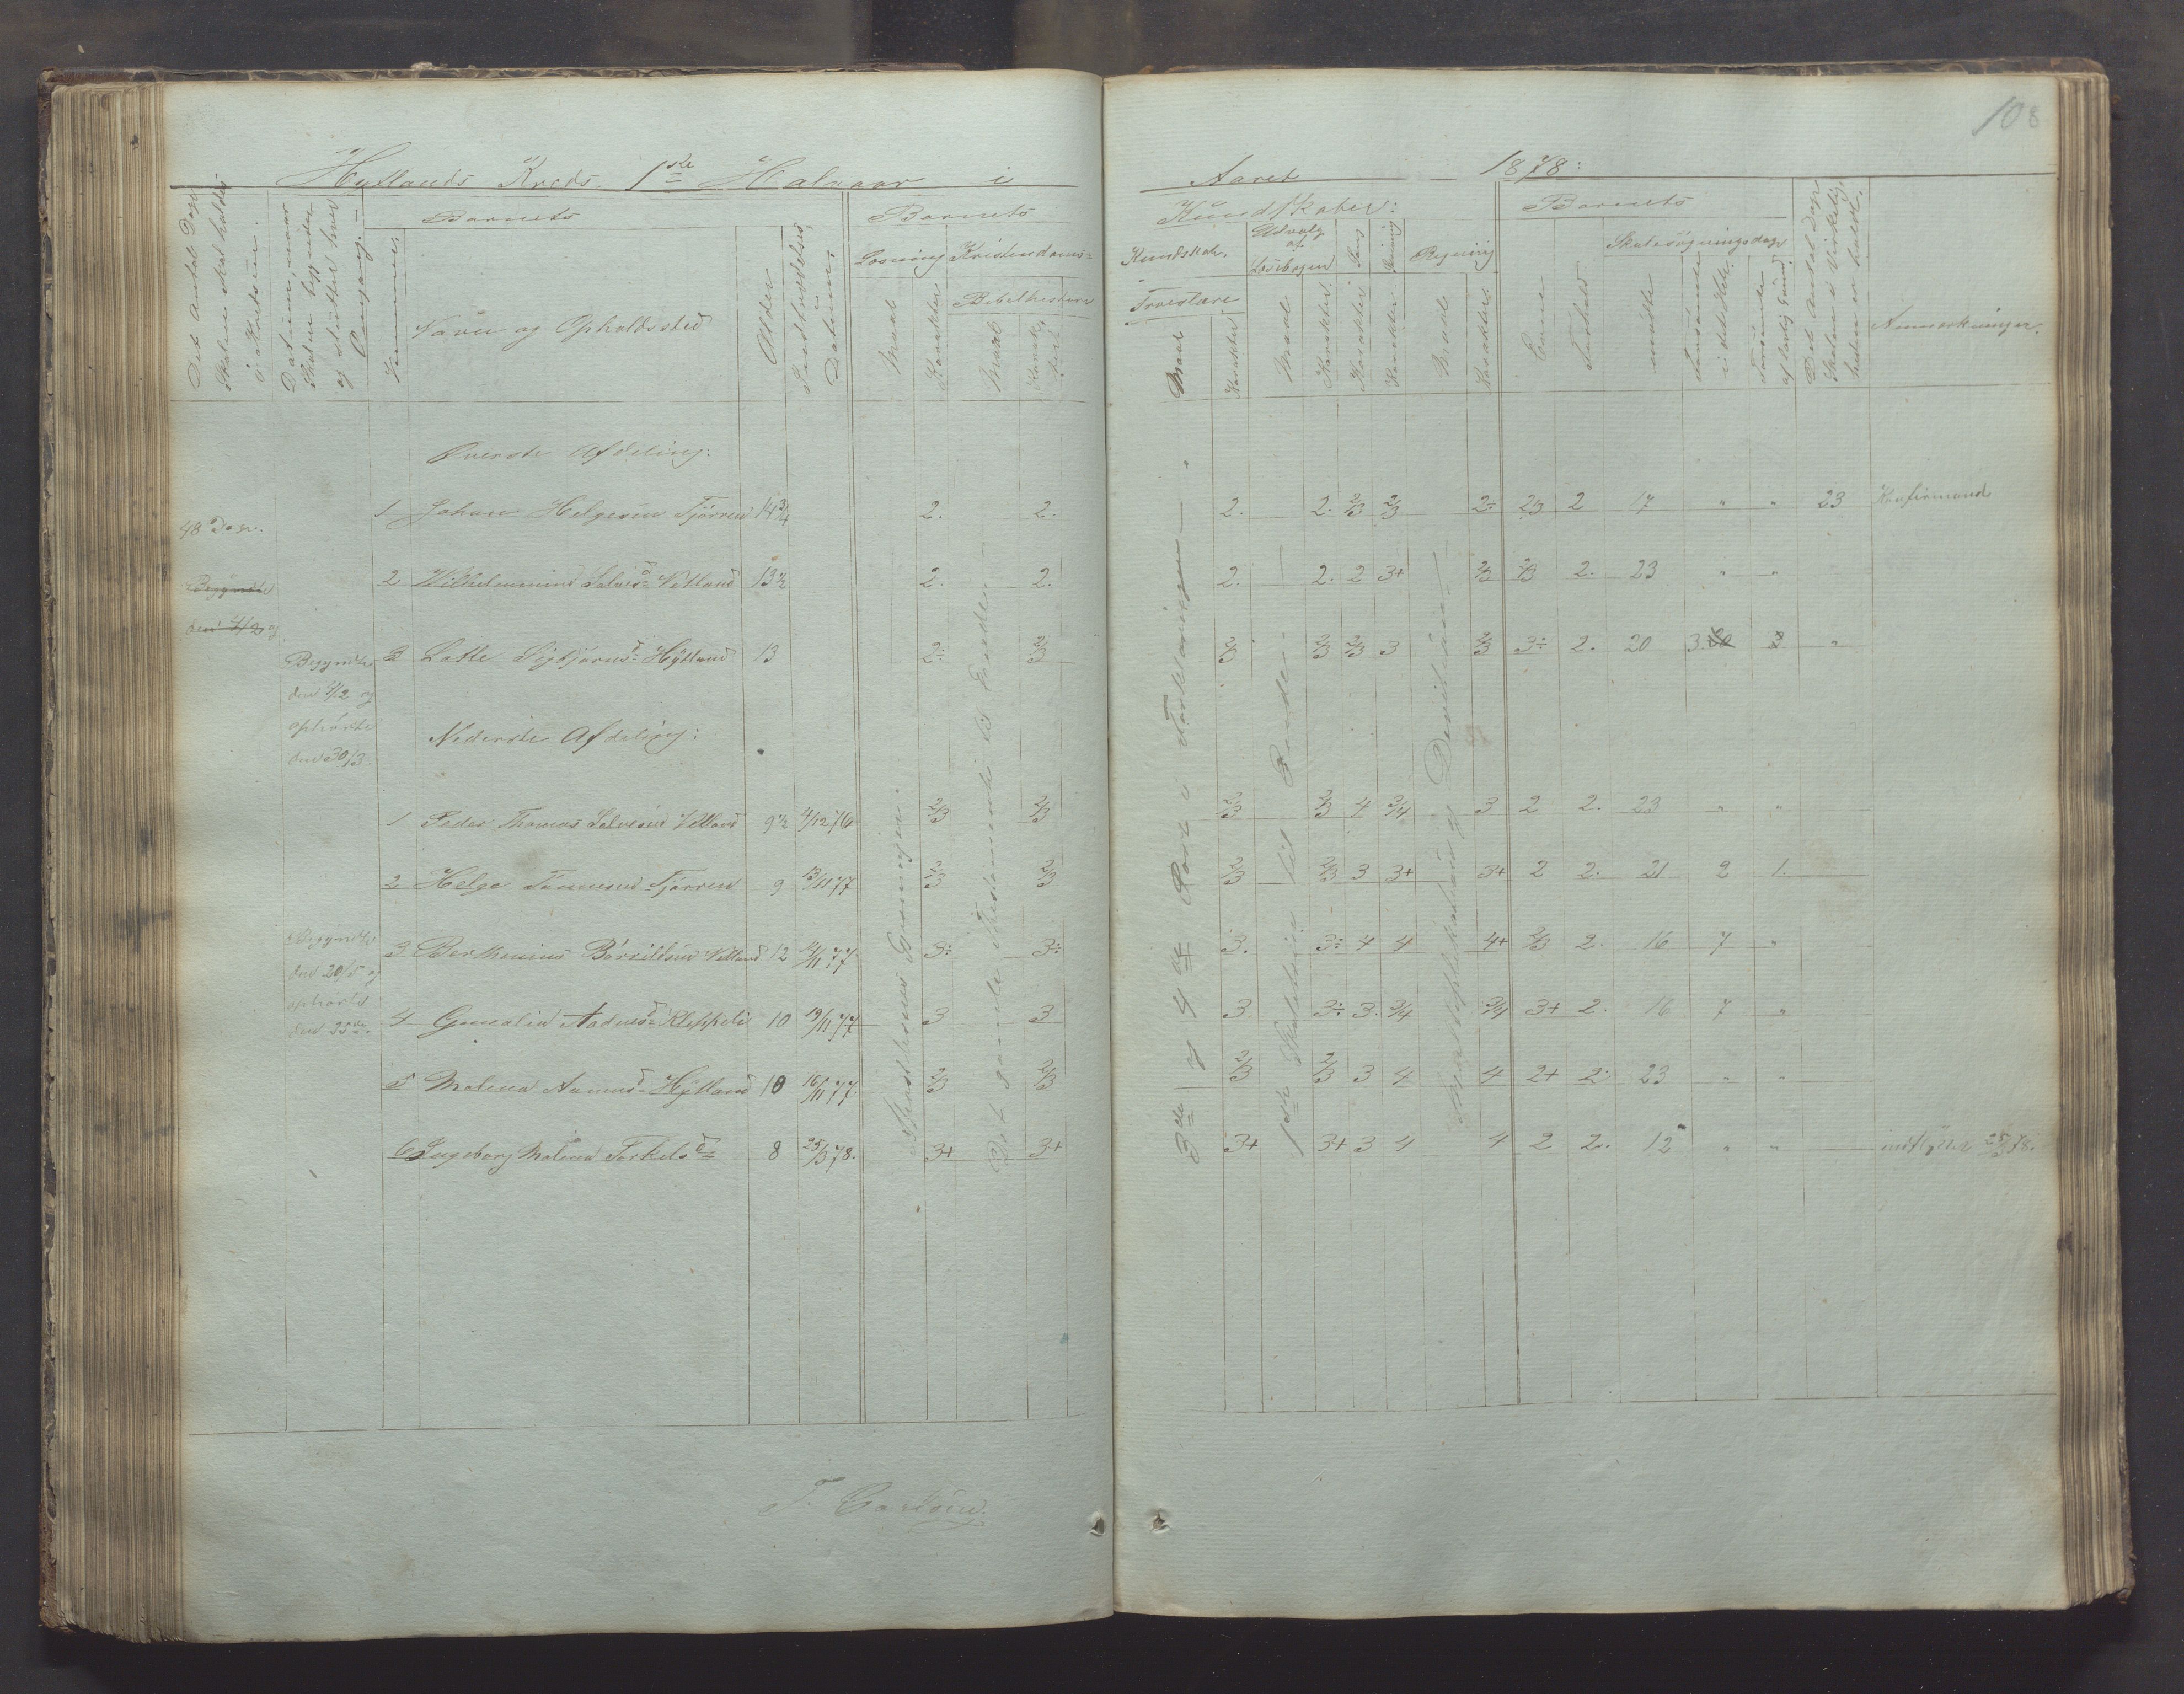 108
Hytlands Kreds 1ste Halvaar i Aaret 1878:
Det Antal Dage Skolen skal holdes i Kredsen.
Datum, naar Skolen begynder og slutter hver Omgang.
Barnets
Nummer.
Navn og Opholdssted
Alder
Indtrædelses Datum.
Barnets
Læsning
Maal
Karakter
Kristendoms=
Bibelhistorie
Maal
Karakter
Kundskaber:
Kundskab.
Troeslære
Maal
Karakter
Udvalg af Læsebogen
Maal
Karakter
Sang
Karakter
Skrivning
Karakter
Regning
Maal
Karakter
Barnets
Evne
Forhold
Skolesøgningsdage
mødte
Forsømte i det Hele
Forsømte af lovlig Grund
Det Antal Dage Skolen i Virkelig heden er holdt.
Anmærkninger.
Øverste Afdeling:
48 Dage.
1 Johan Helgesen Tjörren 14 3/4 2. 2. 2. 2. 2/3 2/3 2÷ 2/3 2 17 " " 23 Konfirmand
Begyndte
den 4/2 og
2 Wilhelmine Salvesd Vetland 13 1/2 2. 2. 2. 2. 2 3+ 2/3 2/3 2. 23 " "
3 Lalle Sigbjørnsd Hýtland 13 2÷ 2/3 2/3 2/3 2/3 3 2/3 3÷ 2. 20 3 "
Begyndte
den 4/2 og
ophörte
den 30/3.
Nederste Afdeling:
1 Peder Thomas Salvesen Vetland 9 1/2 4/12 76 2/3 2/3 2/3 2/3 4 3/4 3 2 2. 23 " "
2 Helge Tönnesen Tjörren 9 13/11 77 2/3 2/3 2/3 2/3 3 3+ 3+ 2 2. 21 2 1.
Begyndte
den 20/5 og
ophörte
den 25de.
3 Berthenius Börrildsen Vetland 12 12/11 77 3÷ 3÷ 3. 3÷ 4 4 4+ 2/3 2. 16 7 "
4 Gunalie Aadnesd Kleppeli 10 19/11 77 3 3 3 3÷ 3. 3/4 3/4 3+ 2. 16 7 "
5 Malena Aanensd Hýtland 10 16/11 77 2/3 2/3 2/3 2/3 3 4 4 2+ 2. 23 " "
6 Ingeborg Malena Torkelsd 8 25/3 78. 3+ 3+ 3+ 3+ 3 4 4 2 2. 12 " " indflyttet 25/3 78.
Det gamle Testamente til Enden
3de og 4de Part i Forklaringen
1ste Skoletrin til Enden
Multiplikation og Division
T. Carlsen.